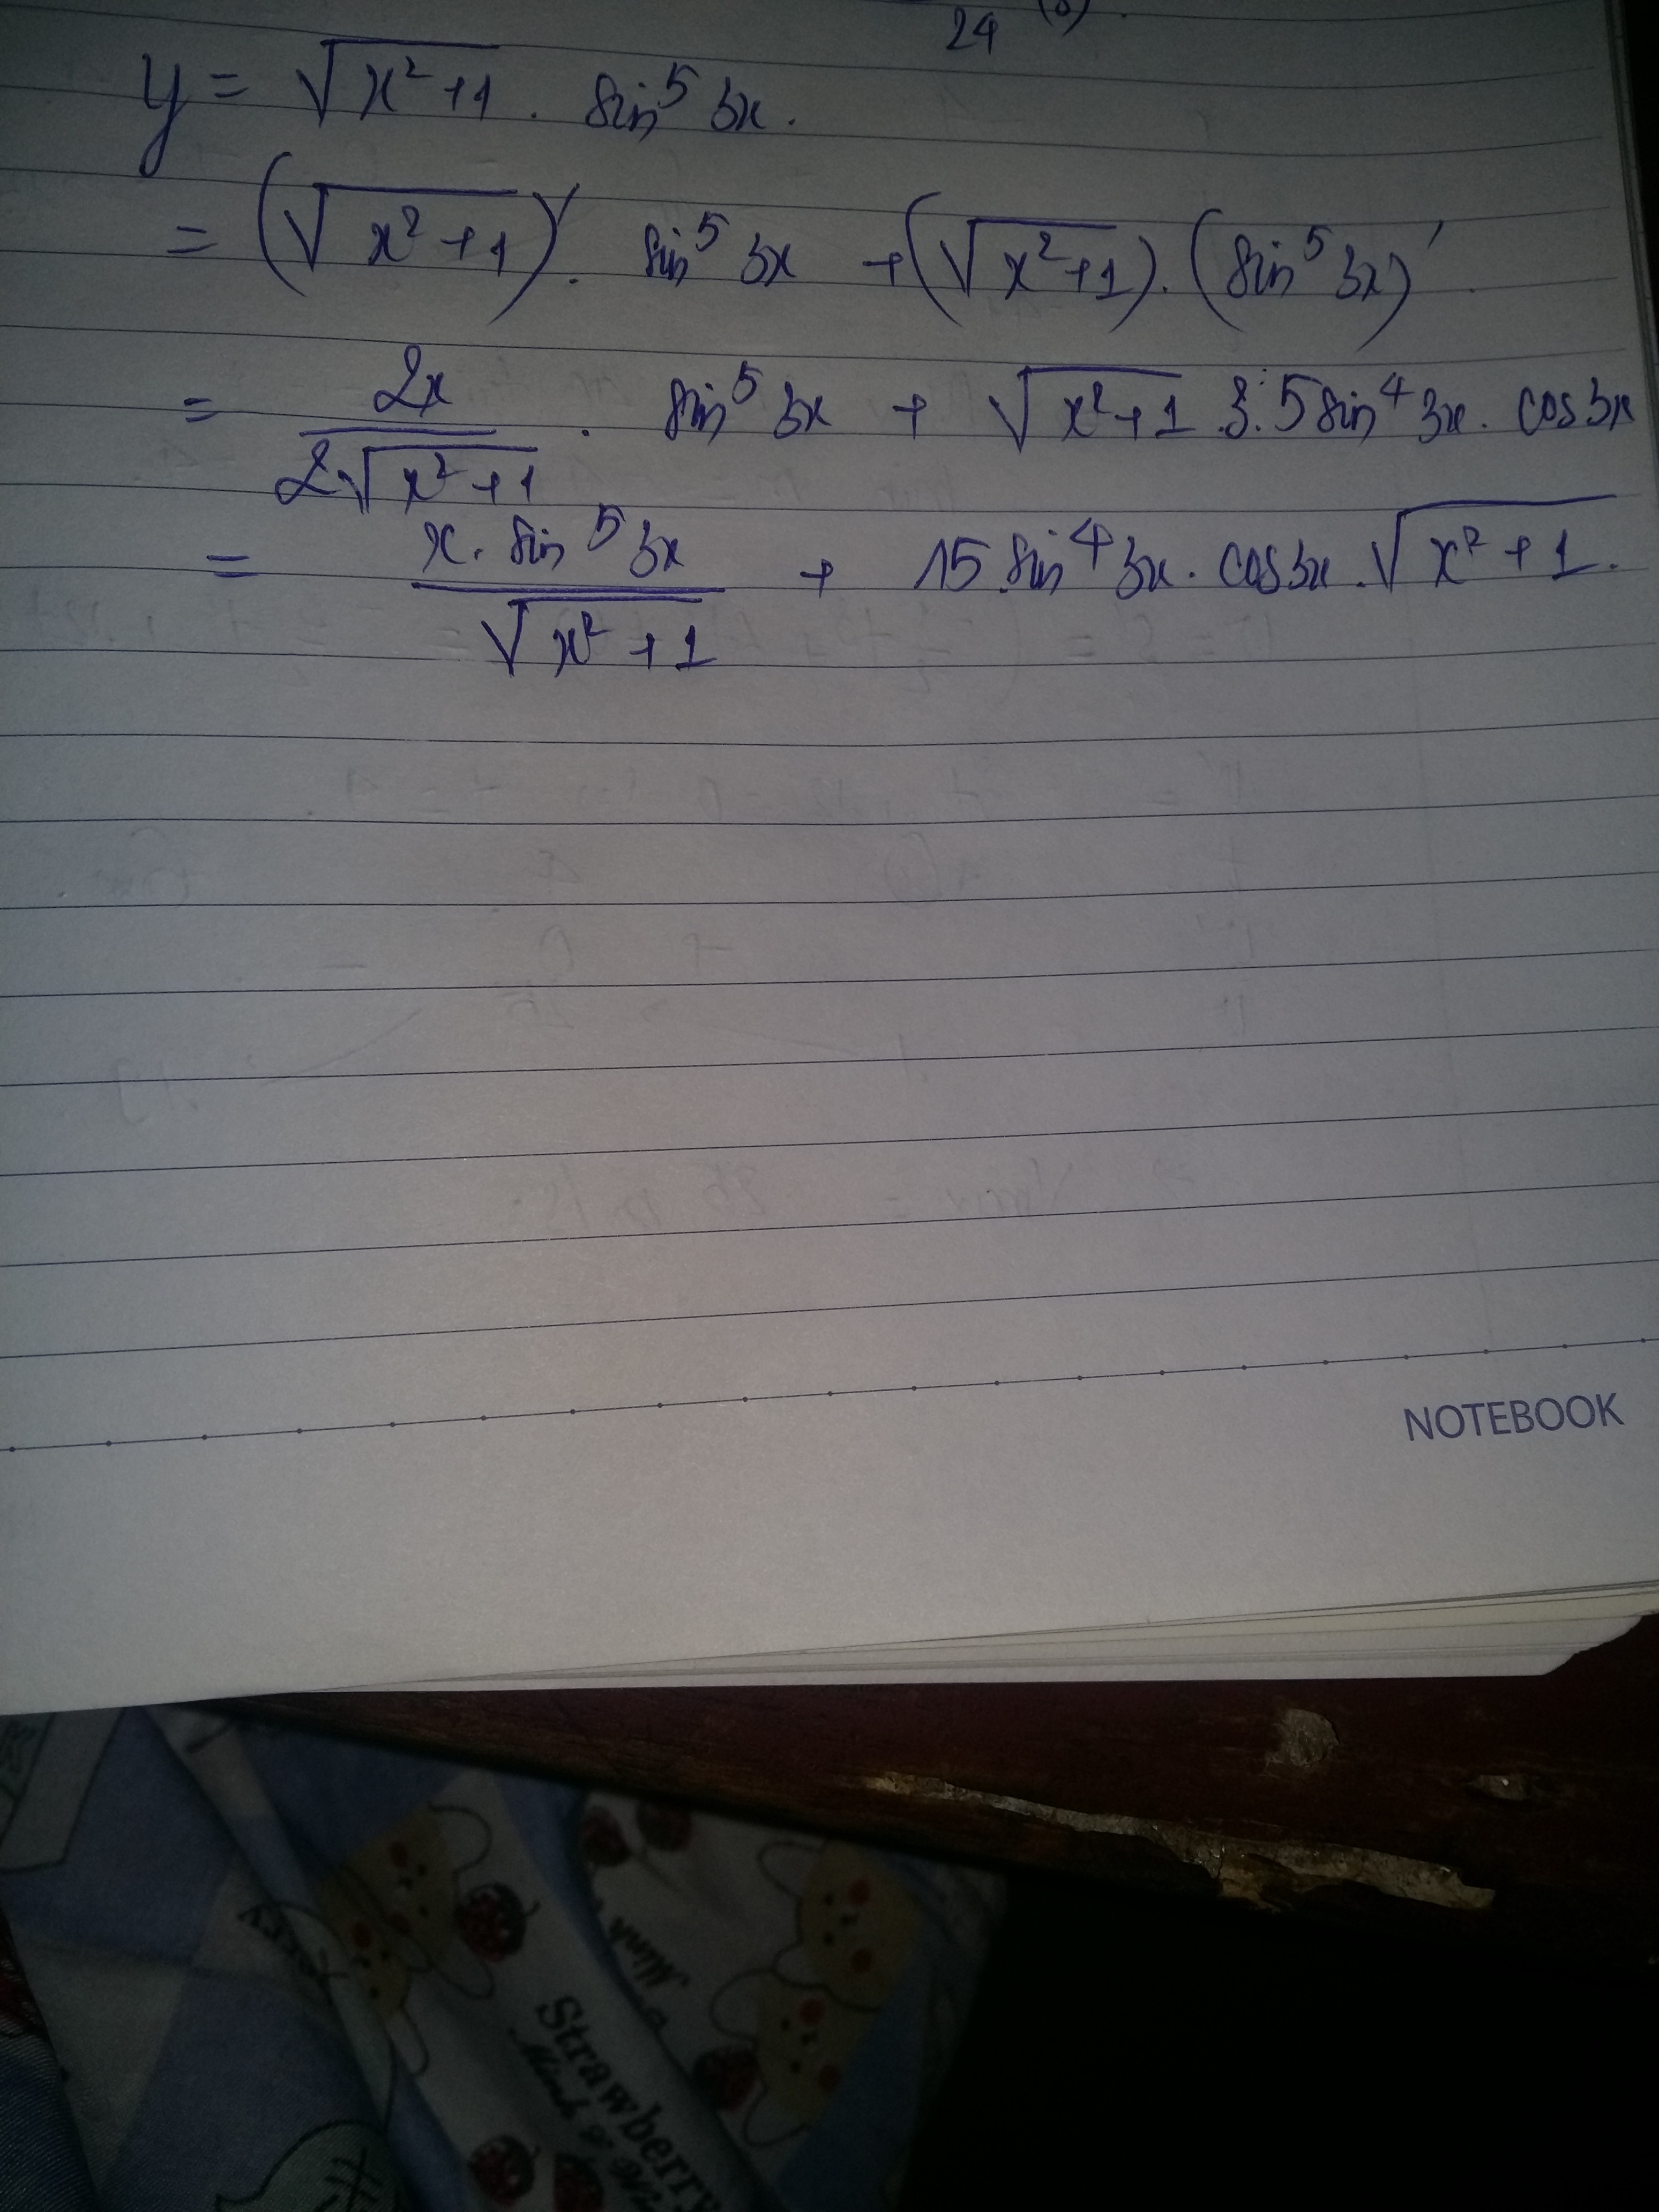 24 (6).
y = √(x² + 1) . sin⁵ 3x.
= (√(x² + 1))' . sin⁵ 3x + (√(x² + 1)) . (sin⁵ 3x)' .
= 2x / 2√(x² + 1) . sin⁵ 3x + √(x² + 1) . 3 . 5 sin⁴ 3x . cos 3x
= x . sin⁵ 3x / √(x² + 1) + 15 . sin⁴ 3x . cos 3x . √(x² + 1) .
NOTEBOOK
Strawberry